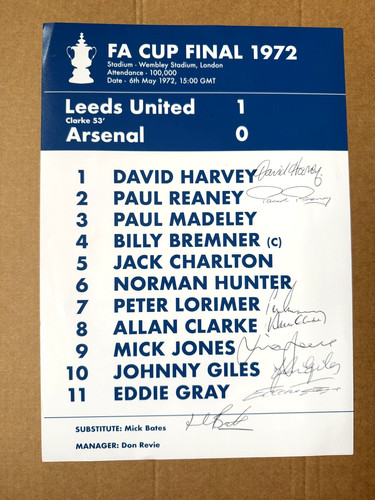 FA CUP FINAL 1972
Stadium - Wembley Stadium, London
Attendance - 100,000
Date - 6th May 1972, 15:00 GMT
Leeds United 1
Clarke 53'
Arsenal 0
1 DAVID HARVEY David Harvey
2 PAUL REANEY Paul Reaney
3 PAUL MADELEY
4 BILLY BREMNER (C)
5 JACK CHARLTON
6 NORMAN HUNTER
7 PETER LORIMER
8 ALLAN CLARKE
9 MICK JONES
10 JOHNNY GILES Giles
11 EDDIE GRAY
SUBSTITUTE: Mick Bates
MANAGER: Don Revie